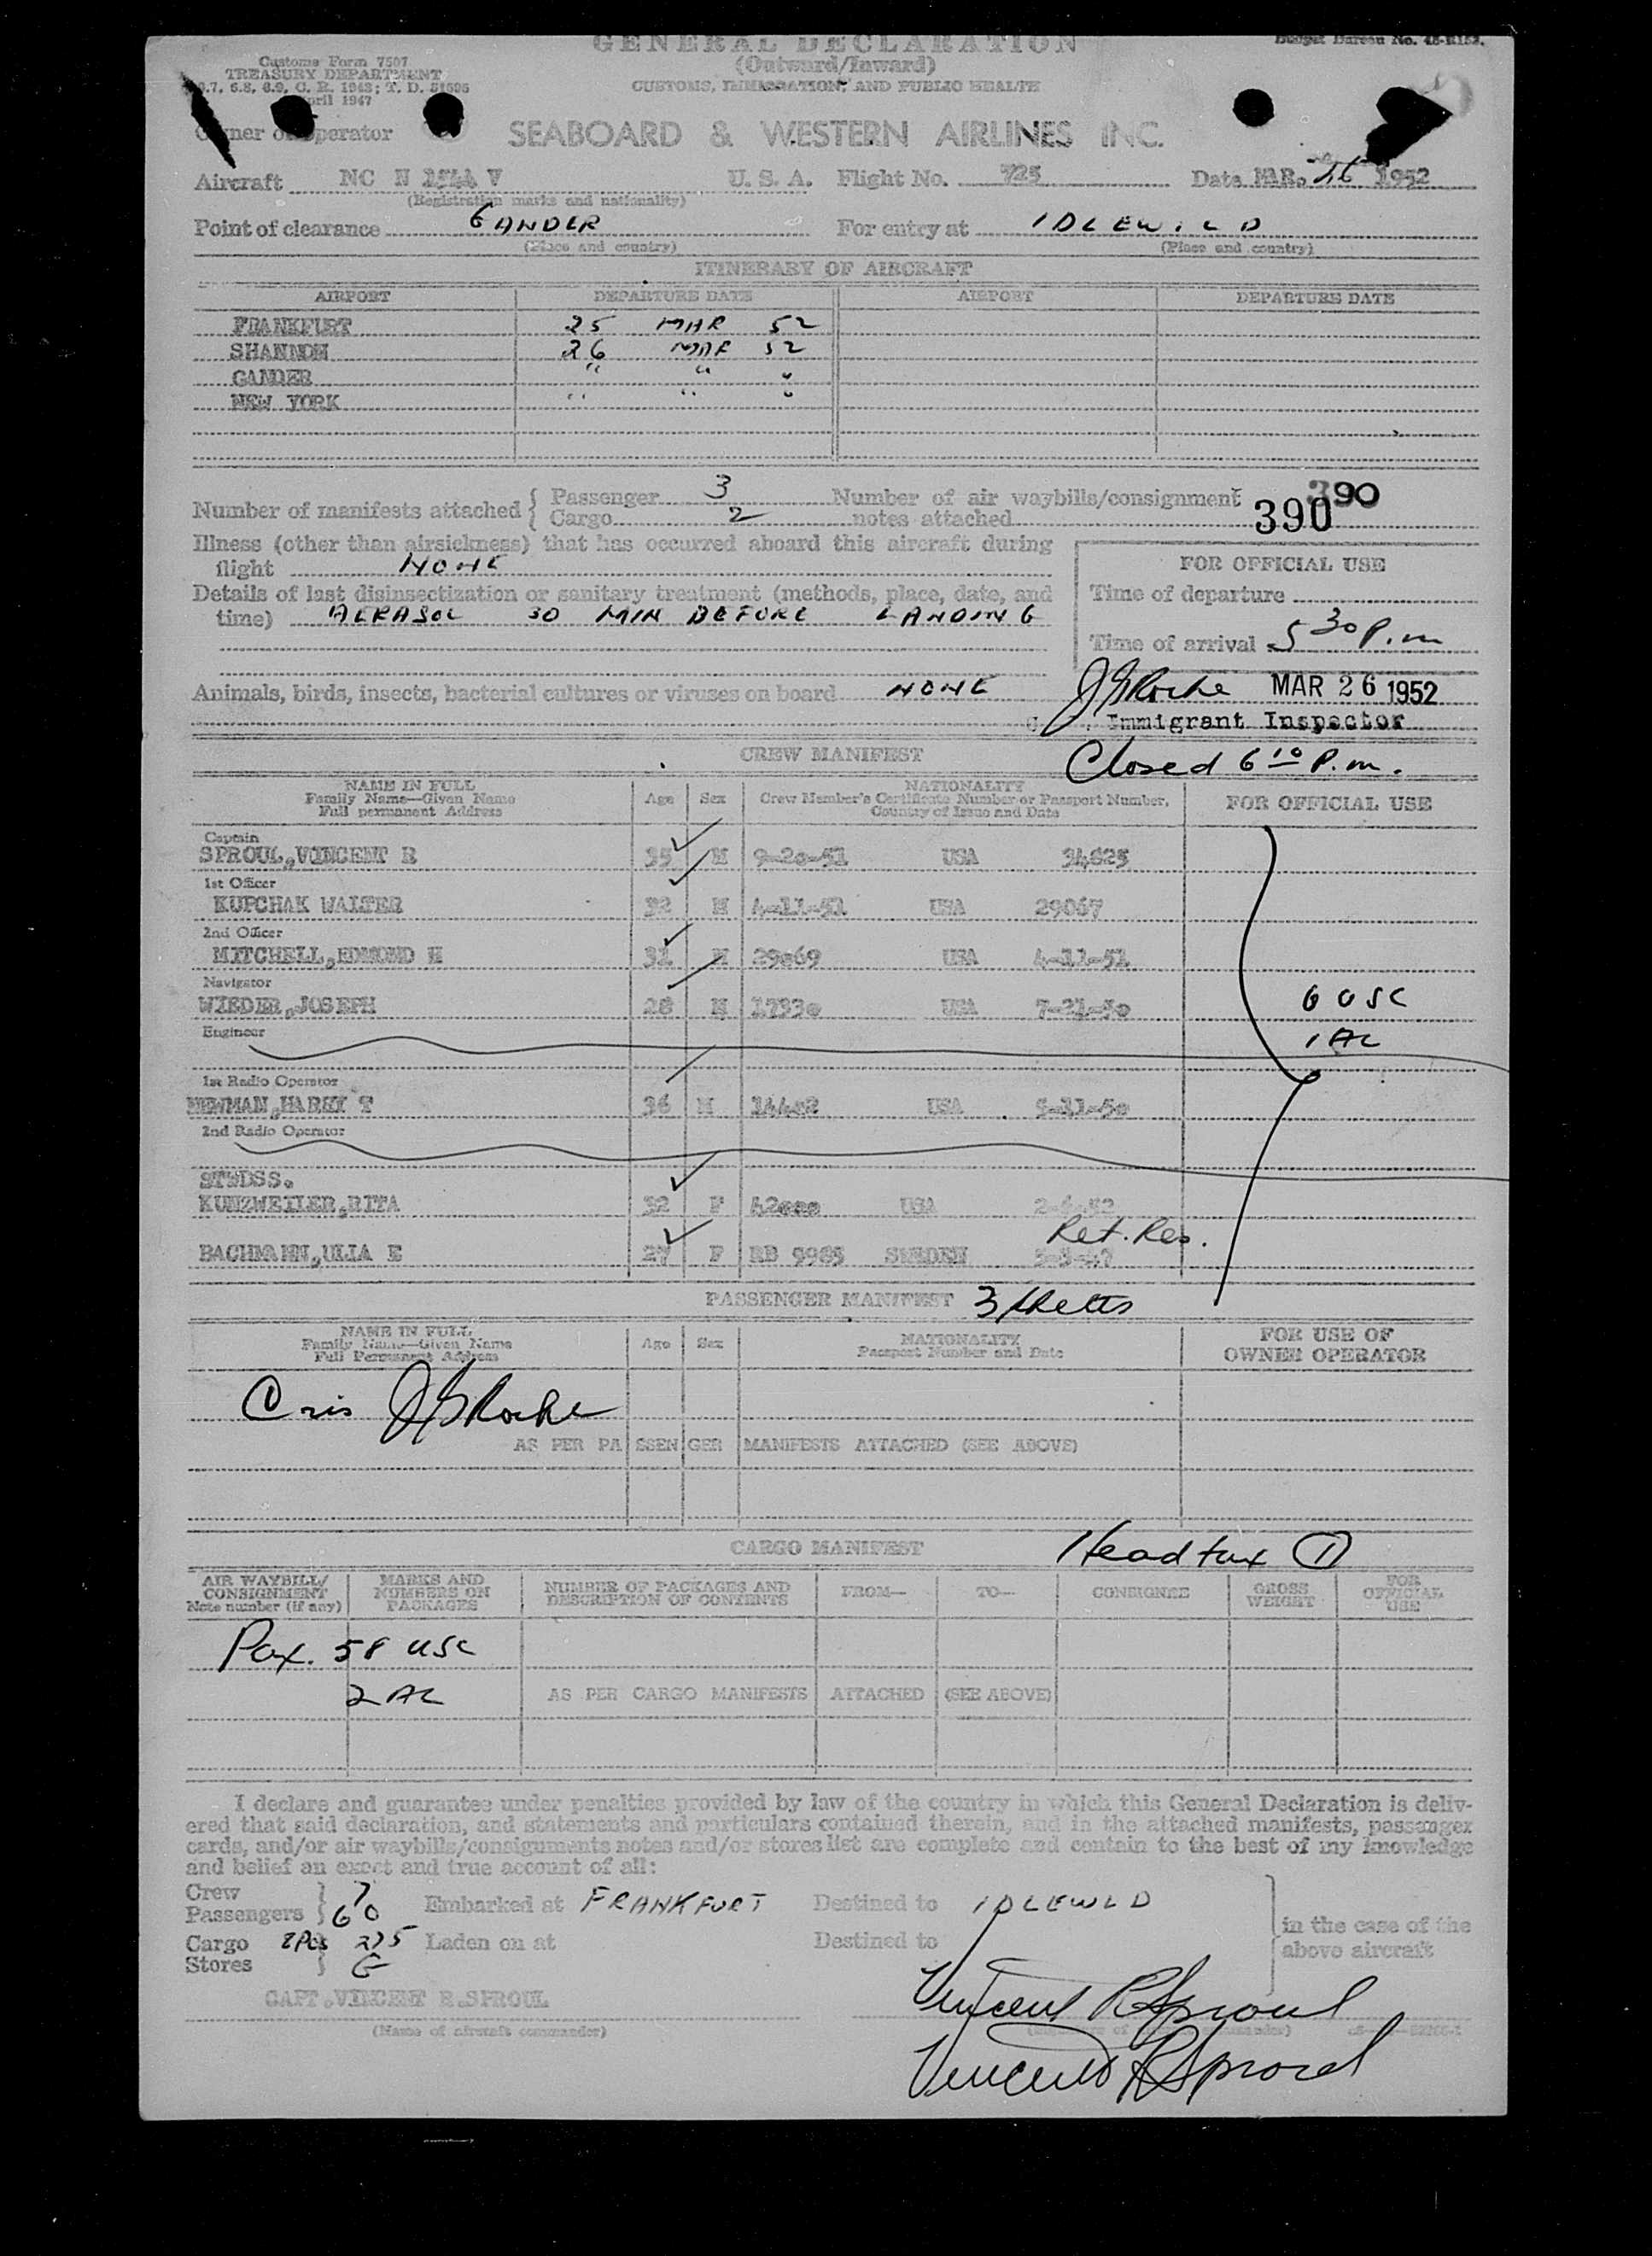 GENERAL DECLARATION
Budget Bureau No.
(Outward/Inward)
Customs Form 7507
TREASURY DEPARTMENT
CUSTOMS, IMMIGRATION, AND PUBLIC HEALTH
April 1947
Owner or Operator SEABOARD & WESTERN AIRLINES INC.
Aircraft NC N V U. S. A. Flight No. 725 Date MAR. 26 1952
(Registration marks and nationality)
Point of clearance GANDER For entry at IDLEWILD
(Place and country) (Place and country)
ITINERARY OF AIRCRAFT
AIRPORT DEPARTURE DATE AIRPORT DEPARTURE DATE
FRANKFURT 25 MAR 52
SHANNON 26 MAR 52
GANDER " " "
NEW YORK " " "
Number of manifests attached { Passenger 3 Number of air waybills/consignment 390
Cargo 2 notes attached 390
Illness (other than airsickness) that has occurred aboard this aircraft during
flight NONE
FOR OFFICIAL USE
Details of last disinsectization or sanitary treatment (methods, place, date, and
time) AERASOL 30 MIN BEFORE LANDING
Time of departure
Time of arrival 5 30 P.m
Animals, birds, insects, bacterial cultures or viruses on board NONE
J G Roche MAR 26 1952
Immigrant Inspector
CREW MANIFEST Closed 6 10 P.m.
NAME IN FULL
Family Name—Given Name
Full permanent Address
Age Sex
NATIONALITY
Crew Member's Certificate Number or Passport Number,
Country of Issue and Date
FOR OFFICIAL USE
Captain
SPROUL,VINCENT R 35 M 9-20-51 USA 34625
1st Officer
KUPCHAK WALTER 32 M 4-11-51 USA 29067
2nd Officer
MITCHELL,EDMOND H 31 M 29069 USA 4-11-51
Navigator
WIEDER,JOSEPH 28 M 17330 USA 7-21-50
6 USC
Engineer
1 AL
1st Radio Operator
NEWMAN,HARRY T 36 M 14402 USA 5-11-50
2nd Radio Operator
STWDSS.
KUNZWEILER,RITA 32 F 42000 USA 2-6-52
Ret. Res.
BACHMANN,ULLA E 27 F RB 9985 SWEDEN
PASSENGER MANIFEST 3 Sheets
NAME IN FULL
Family Name—Given Name
Full Permanent Address
Age Sex
NATIONALITY
Passport Number and Date
FOR USE OF
OWNER OPERATOR
J G Roche
AS PER PASSENGER MANIFESTS ATTACHED (SEE ABOVE)
CARGO MANIFEST Head tax 1
AIR WAYBILL/
CONSIGNMENT
Note number (if any)
MARKS AND
NUMBERS ON
PACKAGES
NUMBER OF PACKAGES AND
DESCRIPTION OF CONTENTS
FROM— TO— CONSIGNEE
GROSS
WEIGHT
FOR
OFFICIAL
USE
Pax. 58 USC
2 AL AS PER CARGO MANIFESTS ATTACHED (SEE ABOVE)
I declare and guarantee under penalties provided by law of the country in which this General Declaration is deliv-
ered that said declaration, and statements and particulars contained therein, and in the attached manifests, passenger
cards, and/or air waybills/consignments notes and/or stores list are complete and contain to the best of my knowledge
and belief an exact and true account of all:
Crew 7
Passengers 60 Embarked at FRANKFURT Destined to IDLEWLD
in the case of the
above aircraft
Cargo Laden on at Destined to
Stores
CAPT.VINCENT R.SPROUL Vincent R Sproul
(Name of aircraft commander)
Vincent R Sproul